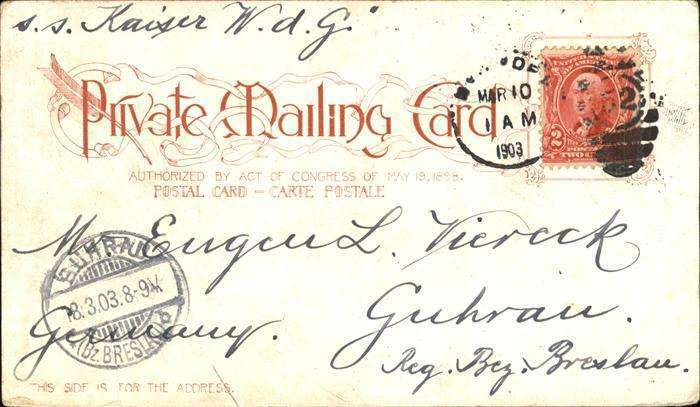 s.s. Kaiser W. d. G.
Private Mailing Card
AUTHORIZED BY ACT OF CONGRESS OF MAY 19, 1898.
POSTAL CARD – CARTE POSTALE
MAR 10
1 AM
1903
2
Mr Eugen L. Viereck
Guhrau.
Germany.
Reg. Bez. Breslau.
GUHRAU
8.3.03.8-9V.
(Bz. BRESLAU)
THIS SIDE IS FOR THE ADDRESS.